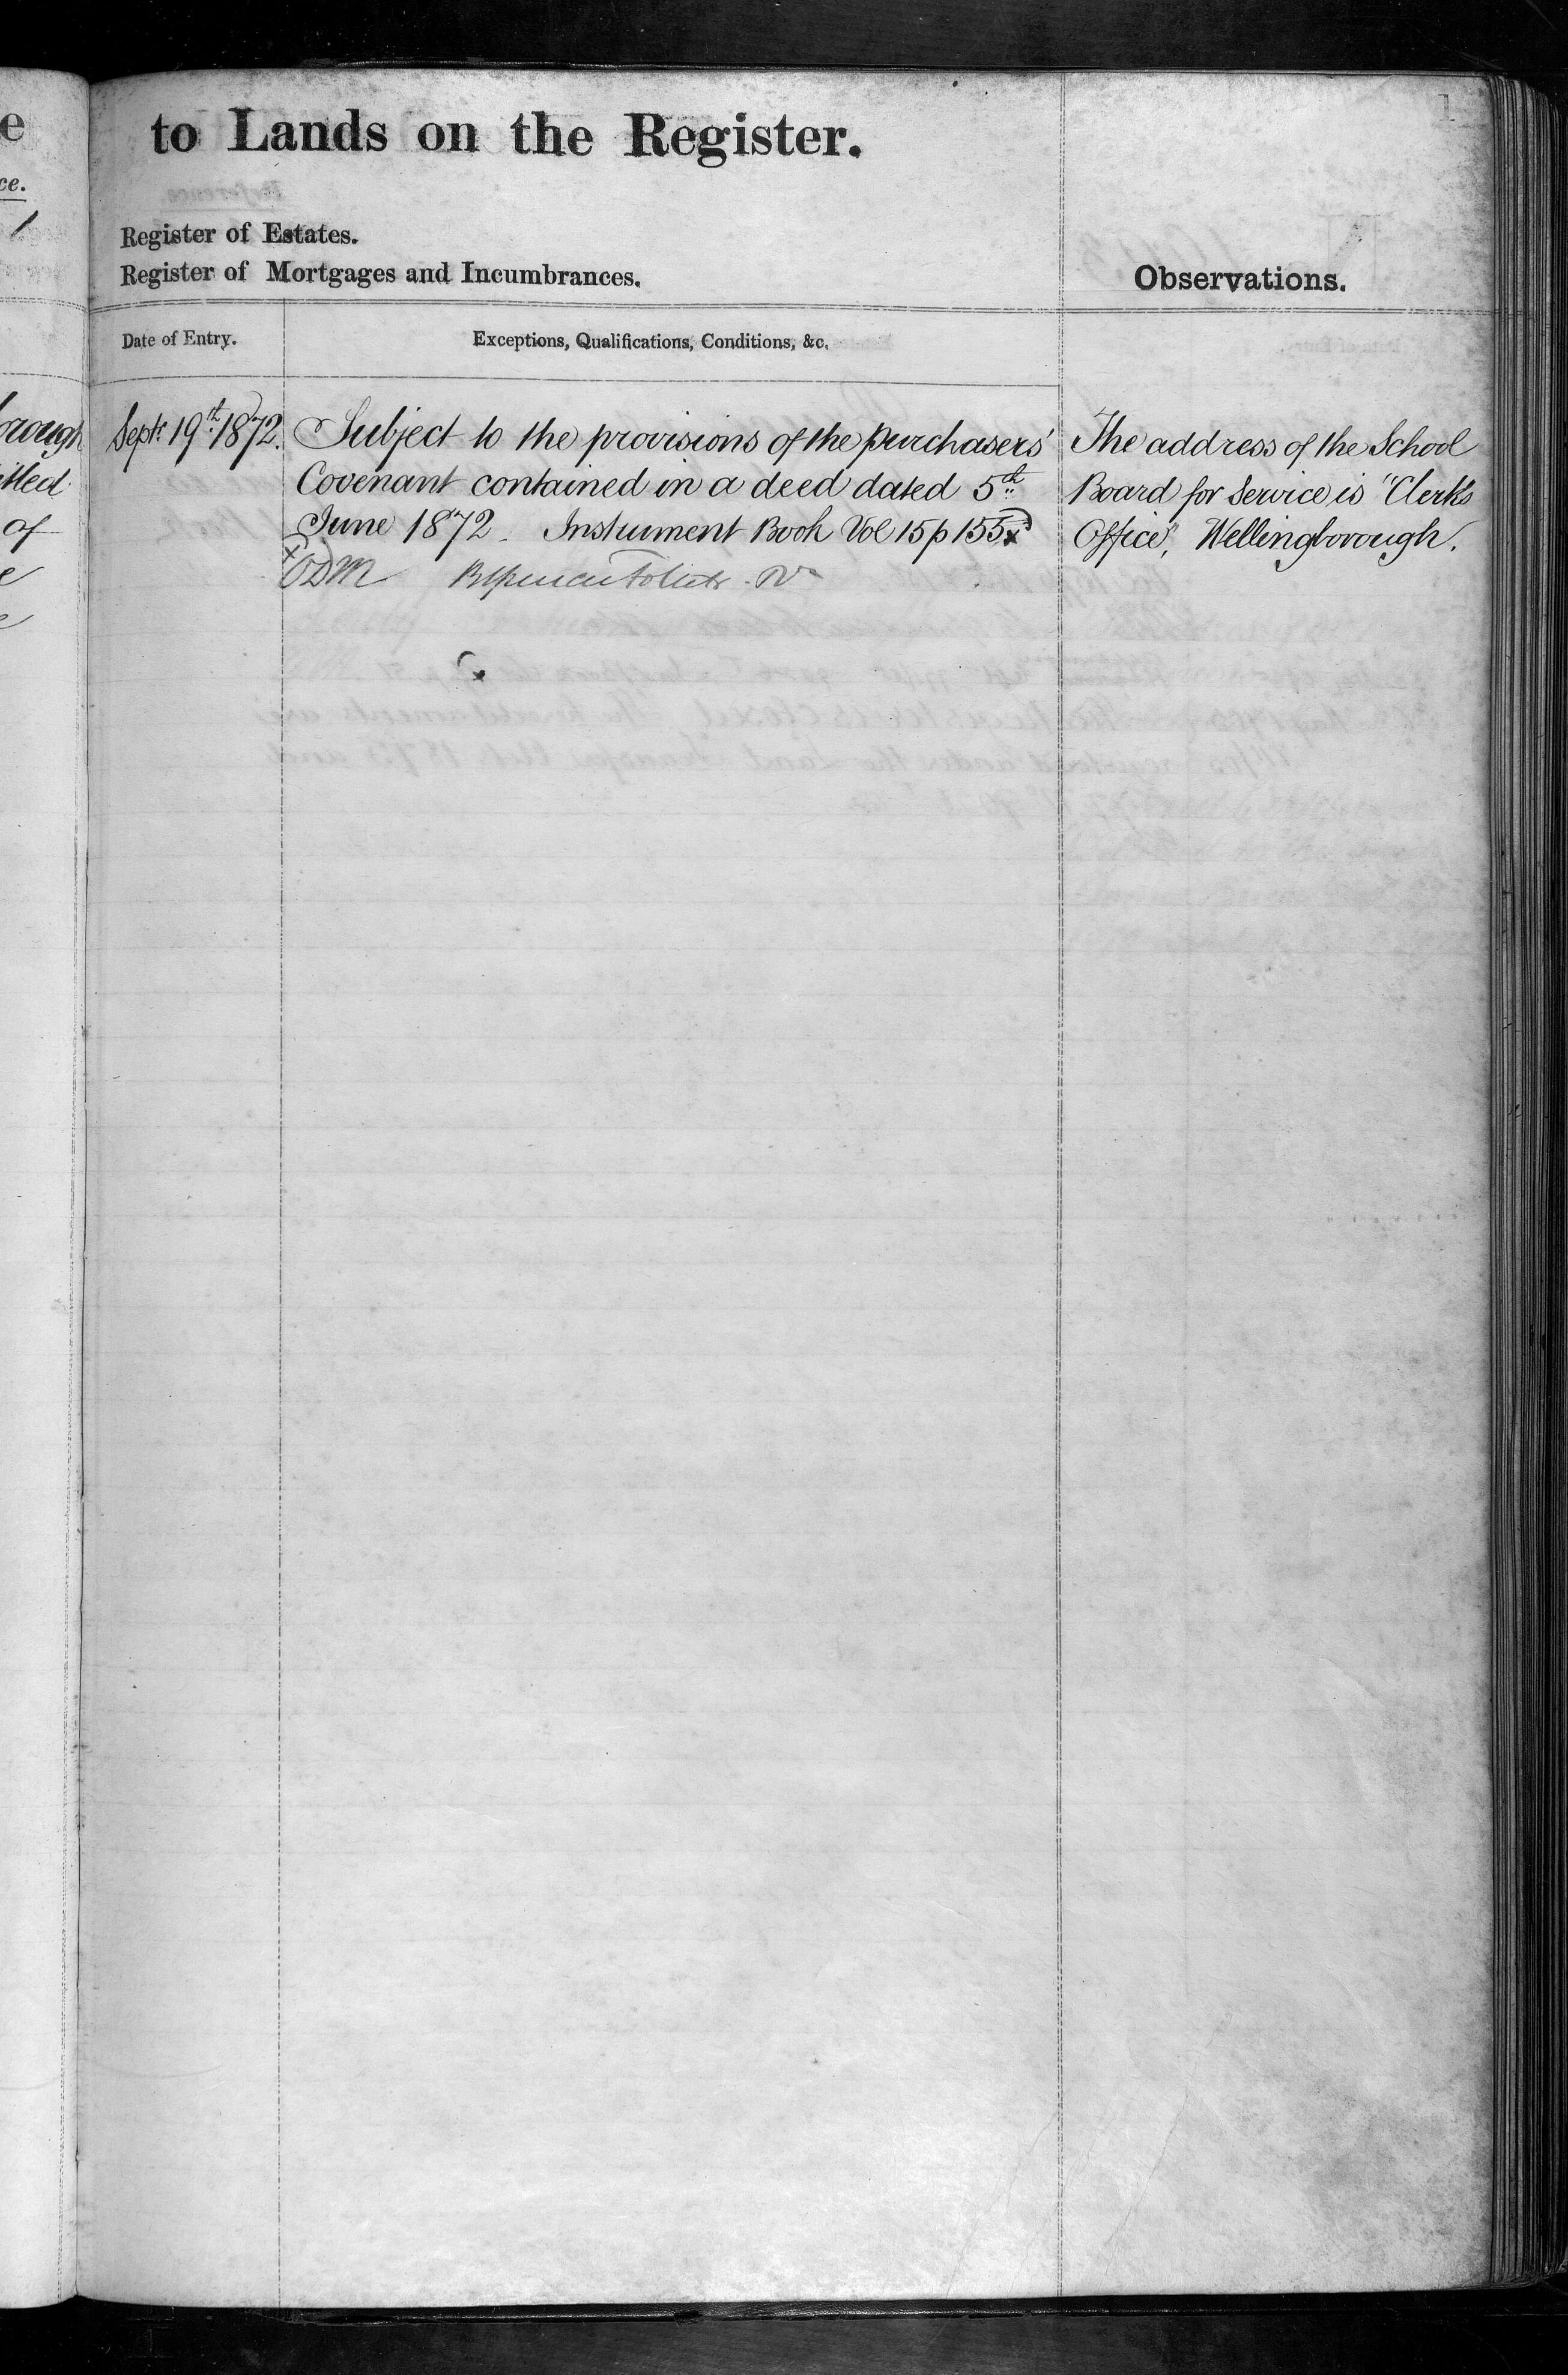 to Lands on the Register.
Register of Estates.
Register of Mortgages and Incumbrances.
Observations.
Date of Entry.
Exceptions, Qualifications, Conditions, &c.
Septr. 19th. 1872.
Subject to the provisions of the purchasers'
Covenant contained in a deed dated 5th
June 1872. Instrument Book Vol 15 p 155 x
The address of the School
Board for Service is "Clerks
Office", Wellingborough.
of
ce.